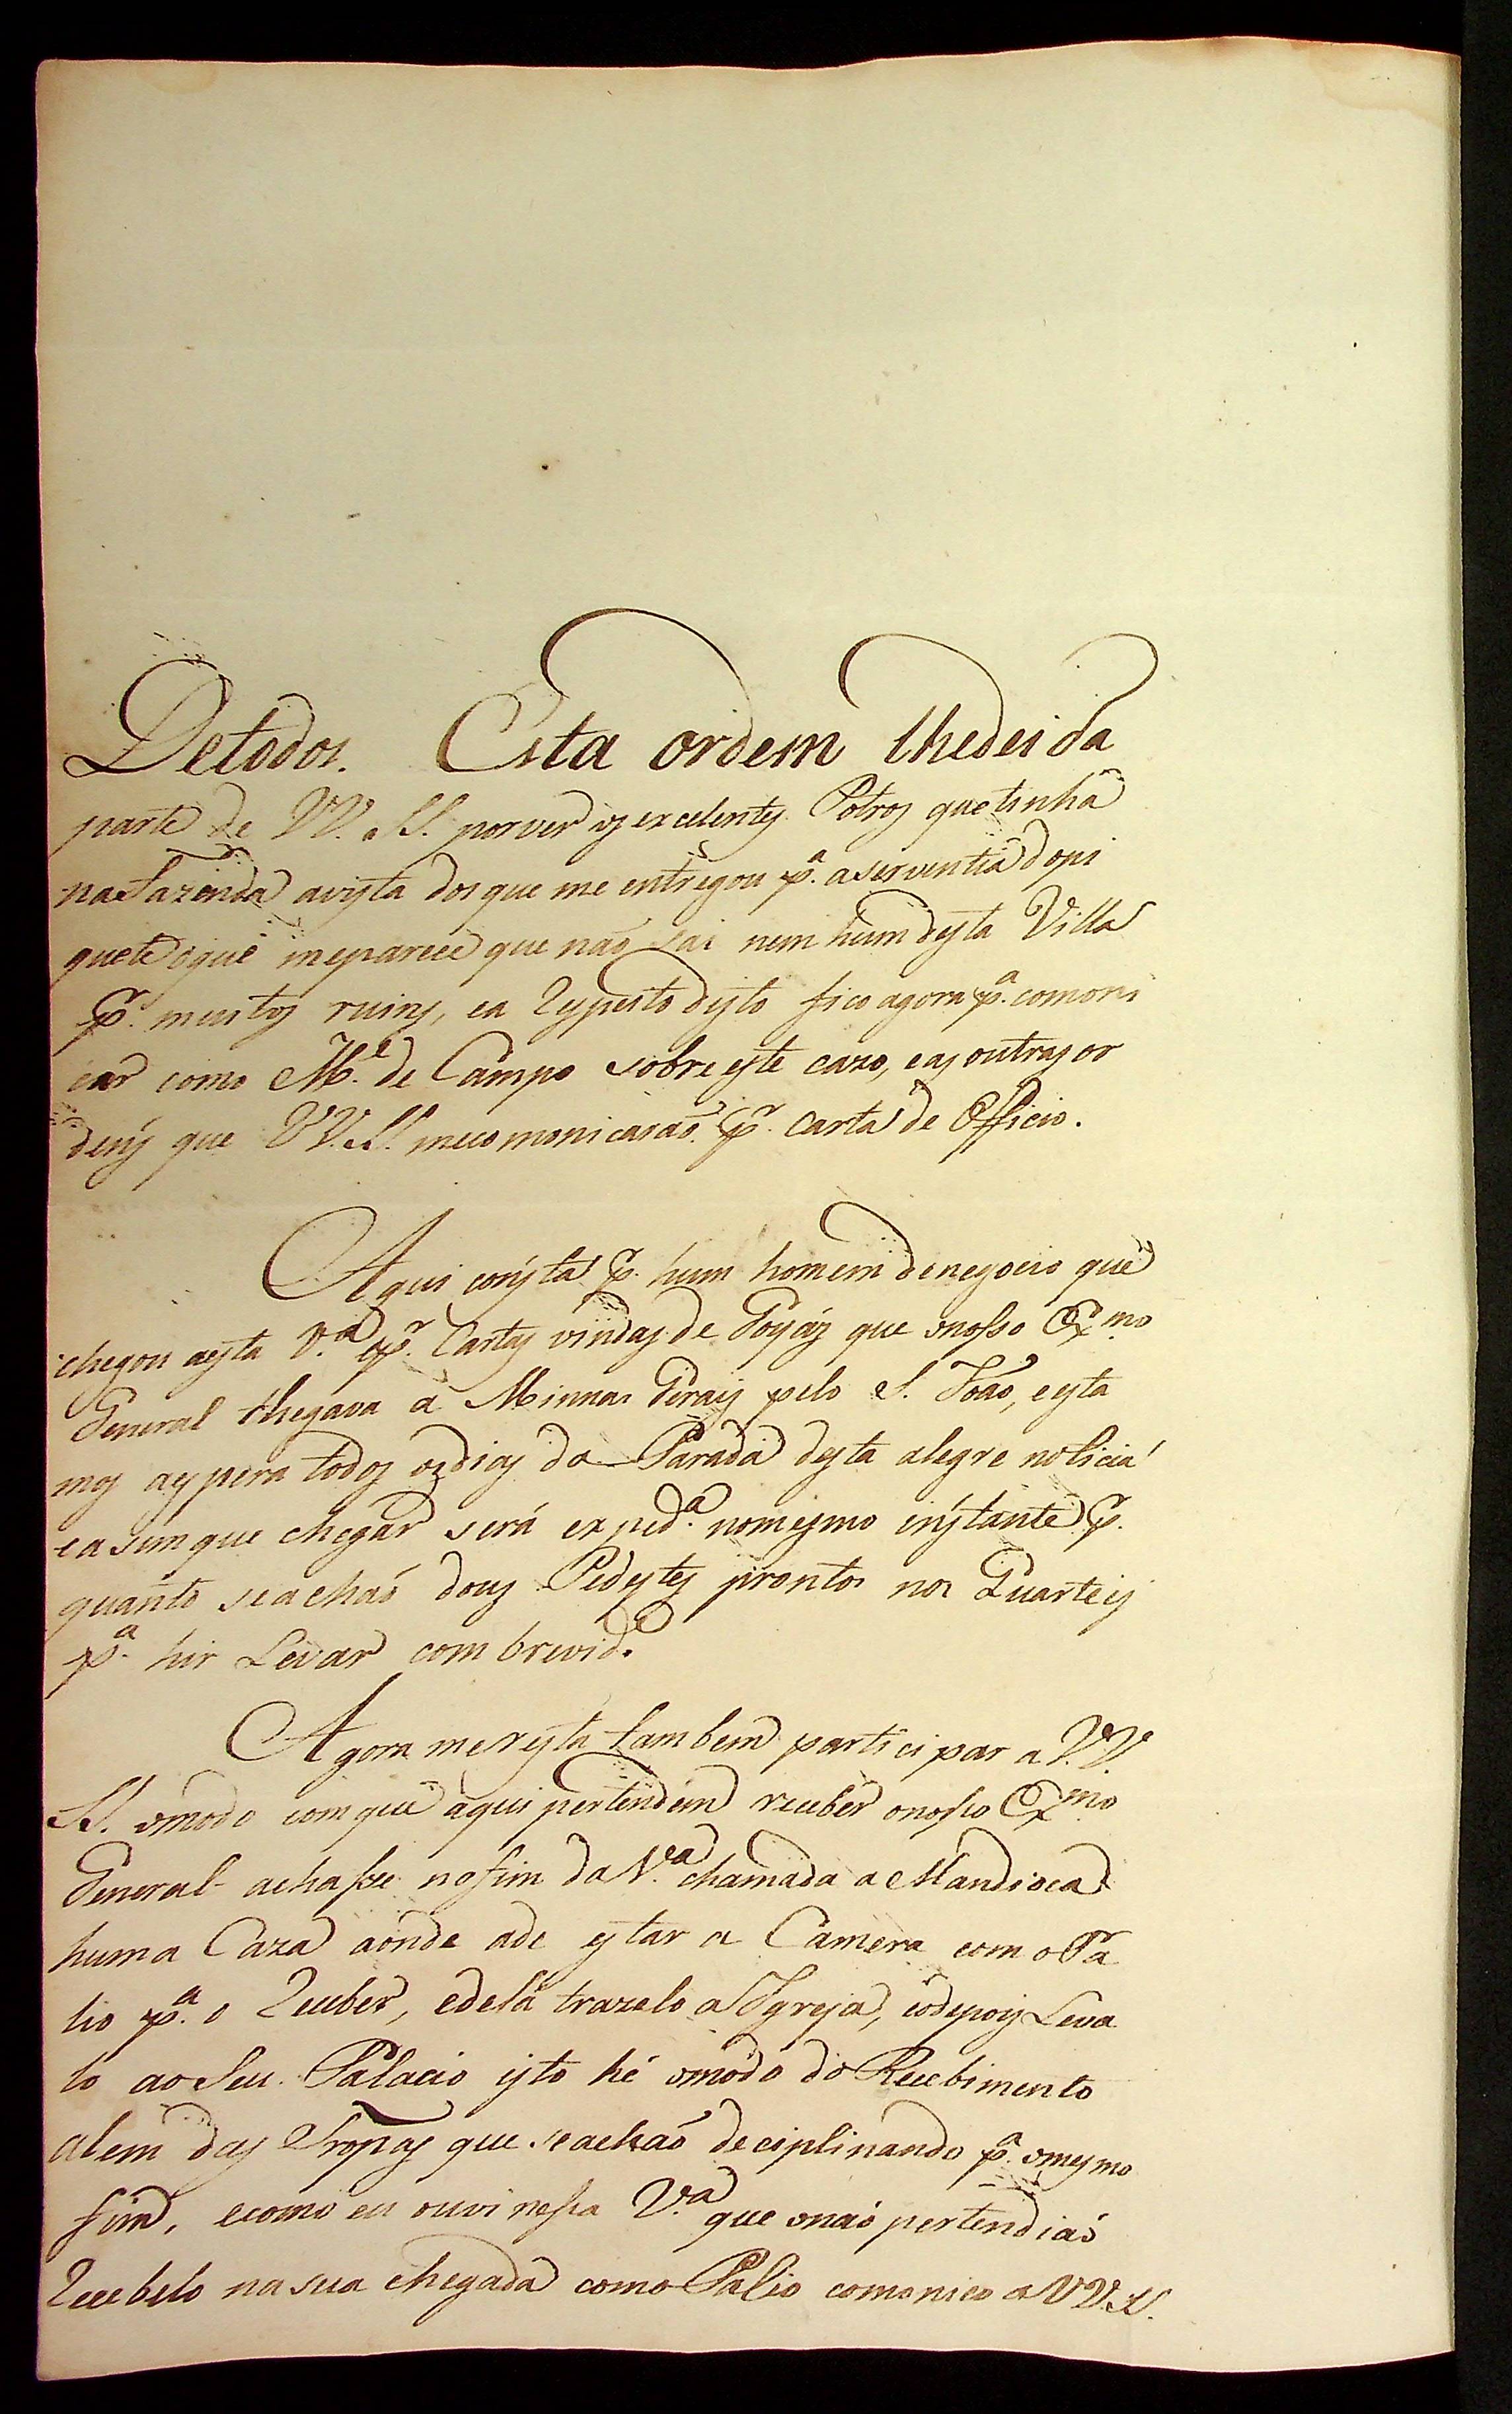 Detodos. Esta ordem lhedei da
parte de VV. SS. porver os excelentes Potros que tinha
na Fazenda avista dosque me entregou p.ª aserventia dopi
quete oque meparece que não sai nem hum desta Villa
p.r muitos ruins, ea Respeito disto fico agora p.ª comoni
car como M.e de Campo sobre este cazo, eas outras or
dens que VV. SS. mecomonicarão p.r carta de Officio.
Aqui consta p.r hum homem denegocio que
chegou aesta V.ª p.r Cartas vindas de Goyáz que onosso Ex.mo
General chegava a Minnas Gerais pelo S. João, esta
mos aespera todos osdias da Parada desta alegre noticia
easimque chegar será exped.ª nomesmo instante p.r
quanto seachão dous Pedestes prontos nos Quarteis
p.ª hir Levar combrevid.e
Agora meresta tambem participar a VV.
SS. omodo comque aqui pertendem receber onosso Ex.mo
General achasse nofim da V.ª chamada a Mandioca
huma Caza aonde ade estar a Camera com oPa
lio p.ª o Receber, edelá trazelo a Igreja, eodepois Leva
lo ao Seu Palacio isto hé omodo do Recebimento
alem das Tropas que seachão deciplinando p.ª omesmo
fim, ecomo eu ouvi nessa V.ª que onão pertendião
Recebelo nasua chegada como Palio comonico a VV. SS.